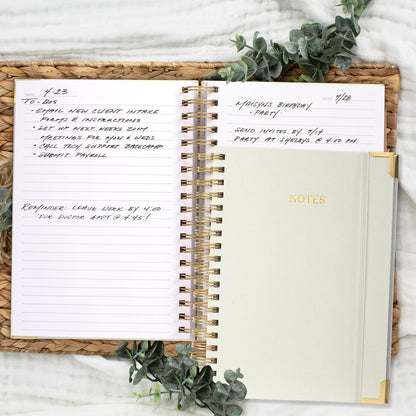 DATE 4-23
TO-DOS
• EMAIL NEW CLIENT INTAKE
FORMS & INSTRUCTIONS
• SET UP NEXT WEEKS ZOOM
MEETINGS FOR MON & WEDS
• CALL TECH SUPPORT BASECAMP
• SUBMIT PAYROLL
REMINDER: LEAVE WORK BY 4:00
FOR DOCTOR APPT @ 4:45!
DATE 7/28
BIRTHDAY
• PARTY
SEND INVITES BY 7/14
PARTY AT SHELBYS @ 4:00 PM
NOTES